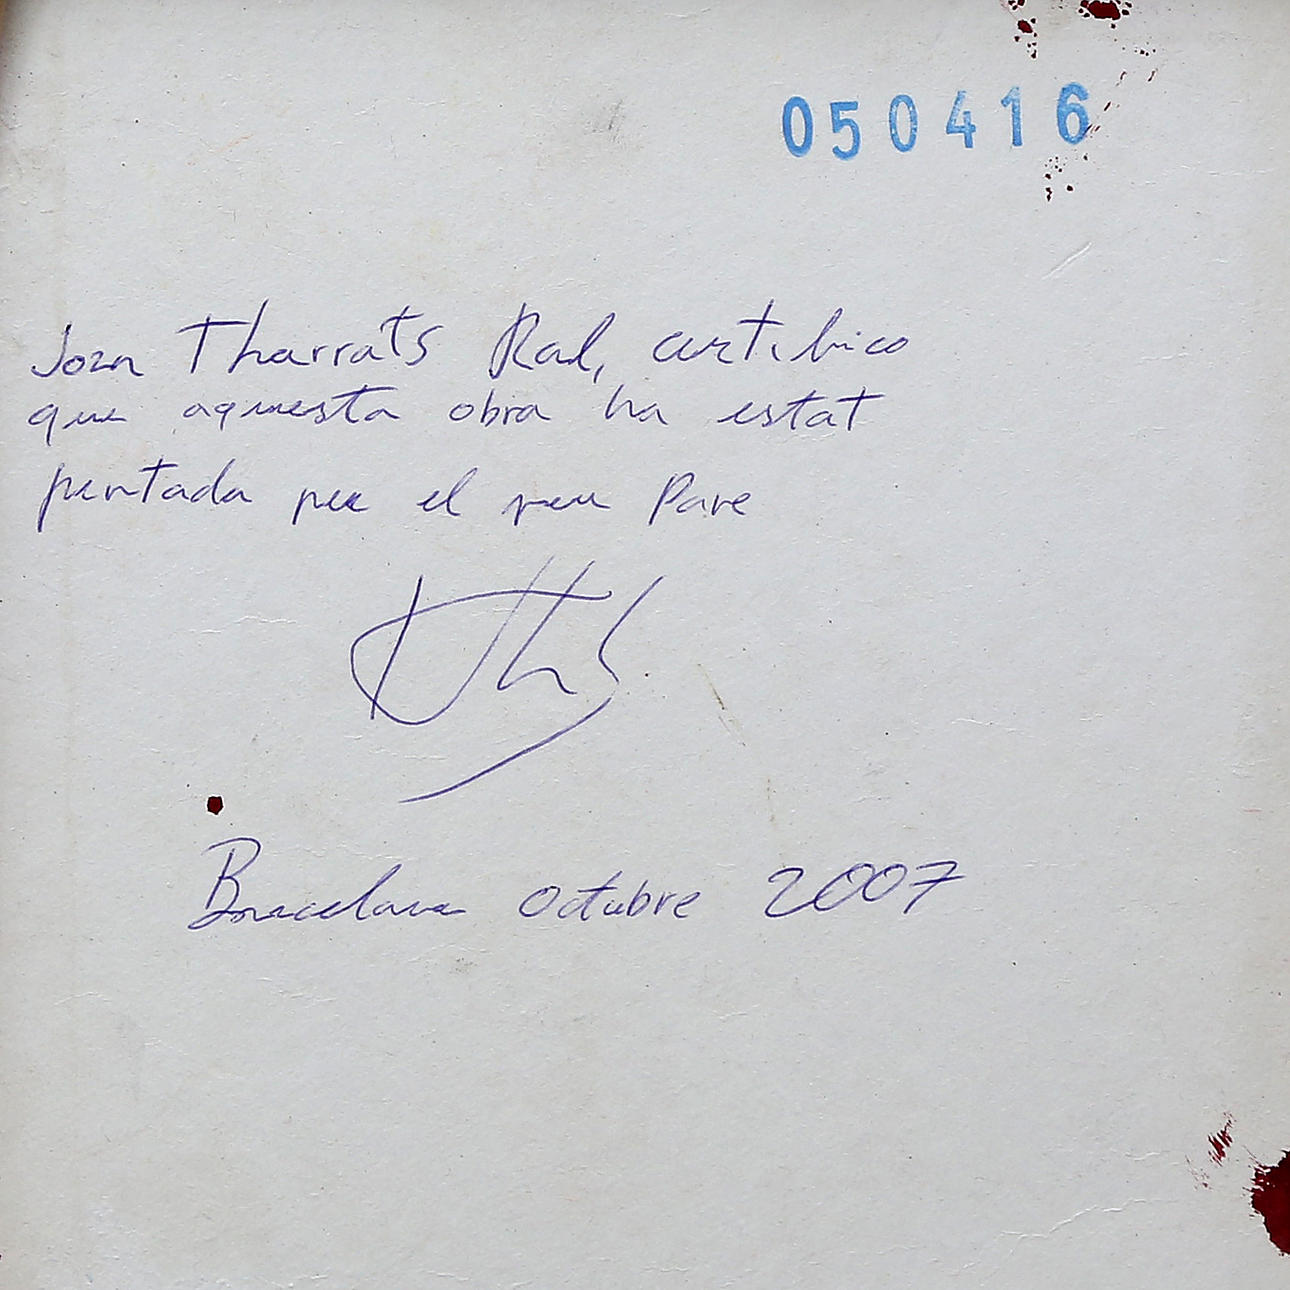 050416
Joan Tharrats Ral, certifico
que aquesta obra ha estat
pintada per el meu Pare
Barcelona Octubre 2007